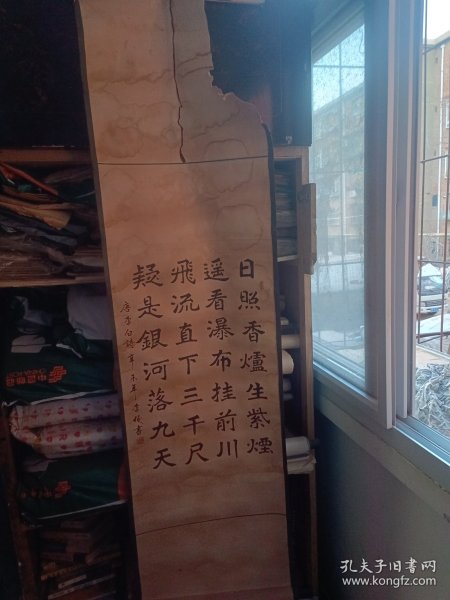 日照香爐生紫煙
遥看瀑布挂前川
飛流直下三千尺
疑是銀河落九天
唐李白詩 辛未年
書
孔夫子旧书网
www.kongfz.com